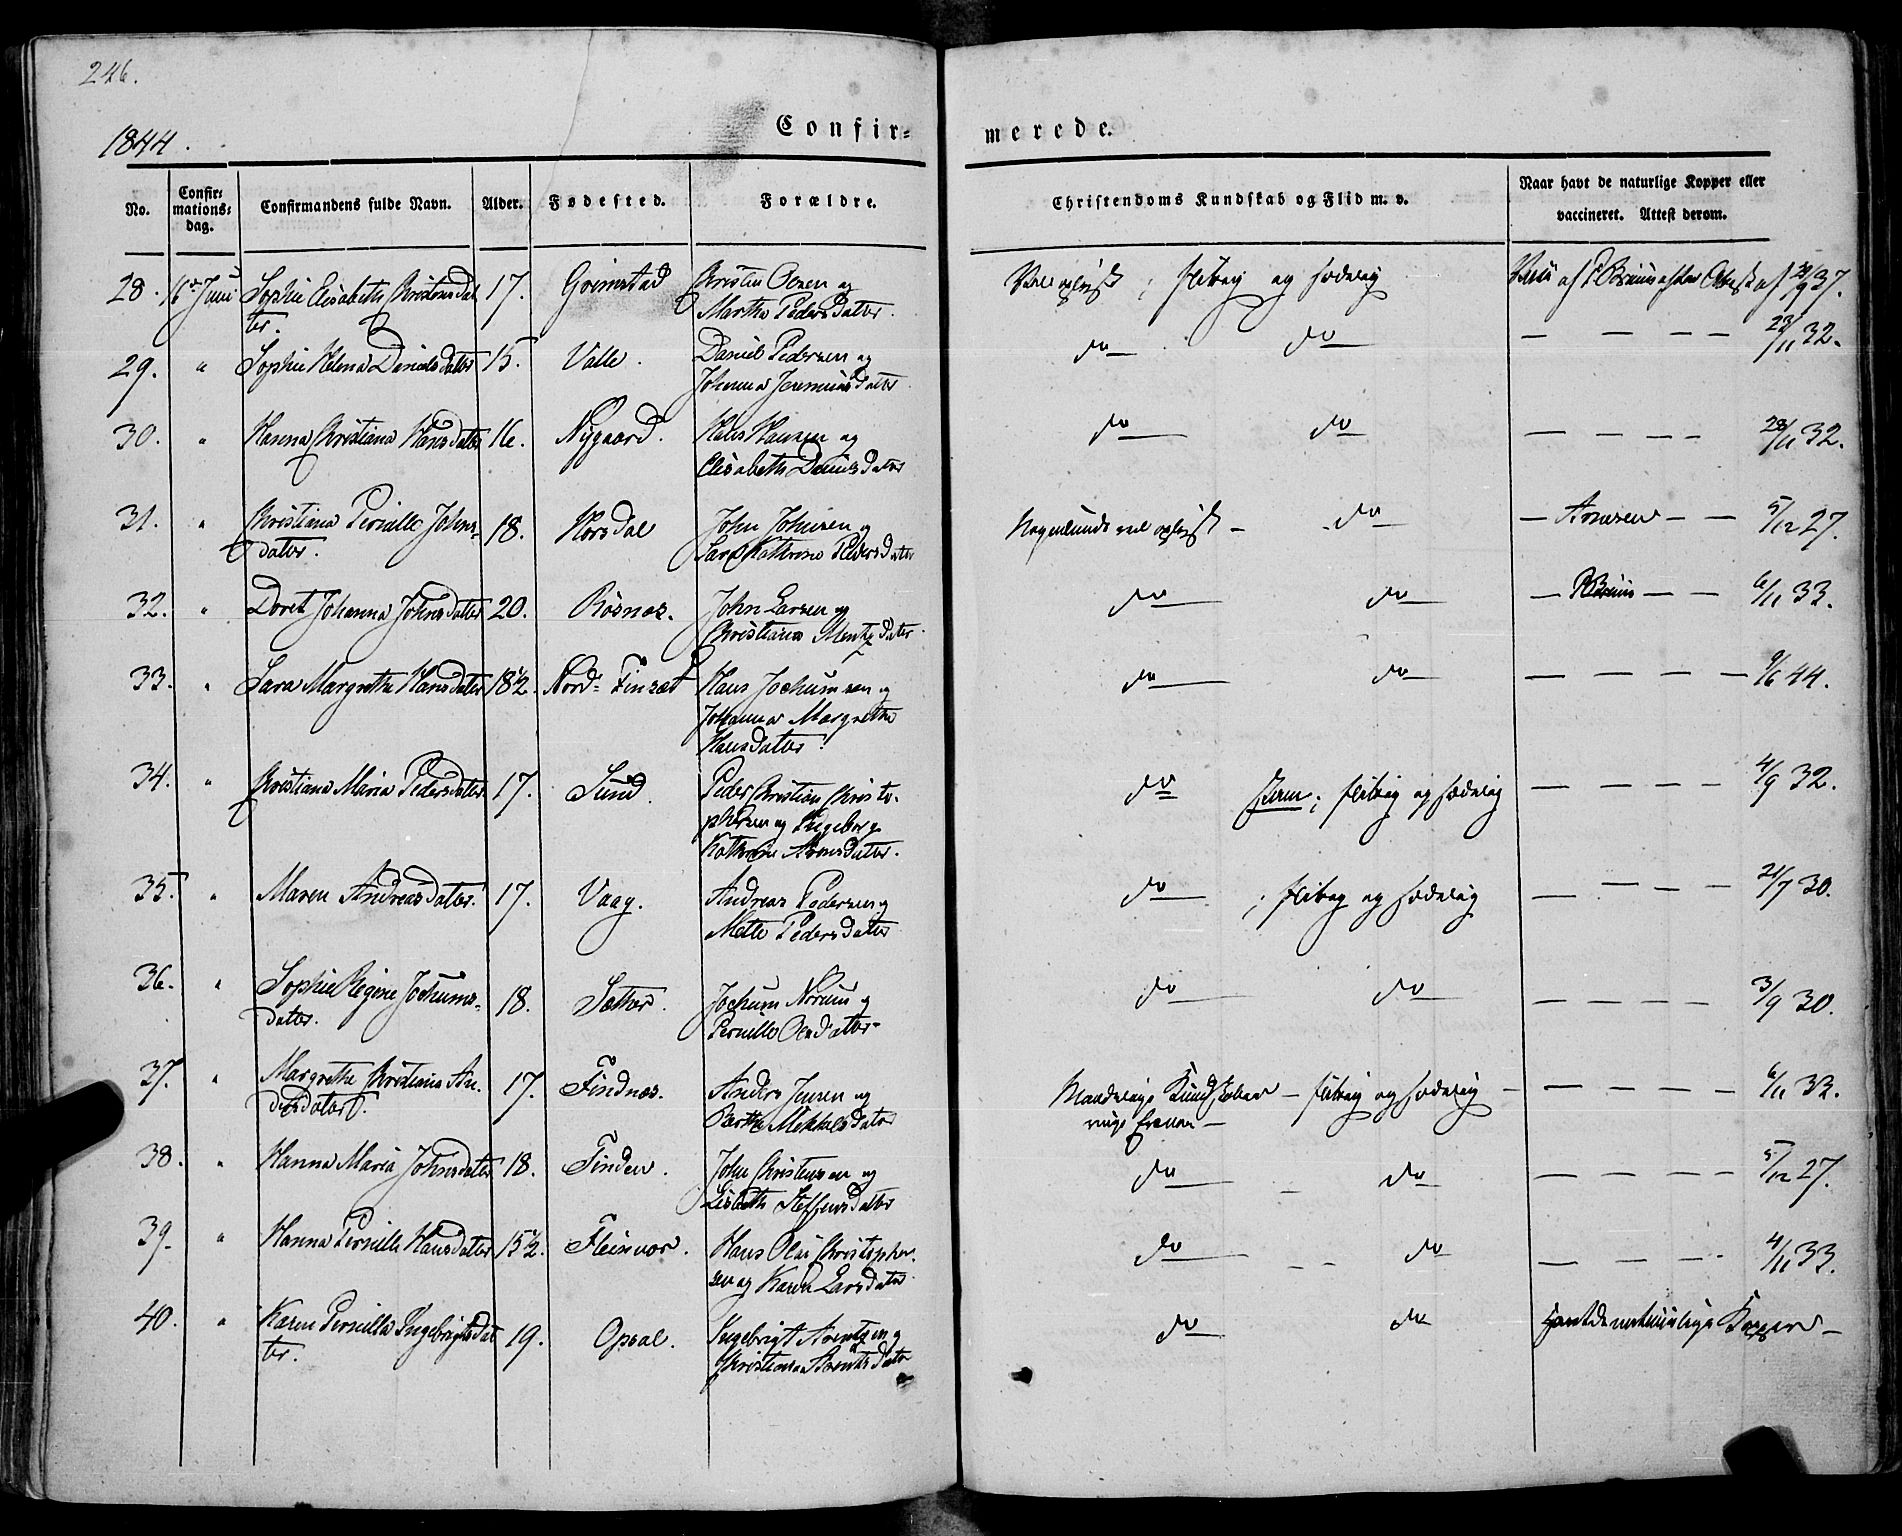 246.
1844.
Confir=
merede.
No.
Confir=
mations=
dag.
Confirmandens fulde Navn.
Alder.
Fødested.
Forældre.
Christendoms Kundskab og Flid m. v.
Naar havt de naturlige Kopper eller
vaccineret. Attest derom.
28. 16de Juni Sophie Elisabeth Christensdat 17. Grimstad Christen Olsen og
ter. Martha Pedersdatter.
Vel oplyst; flittig og sædelig
29. " Sophie Helena Danielsdatter 15. Valle. Daniel Pedersen og
Johanna Jeremiasdatter.
do do — — — — 23/11 32.
30. " Hanna Christiana Hansdatter 16. Nygaard. Hans Hansen og
Elisabeth Danielsdatter
do do — — — — 28/11 32.
31. " Christiana Pernille Johns= 18. Korsdal John Johnsen og
datter. Sara Kathrine Pedersdatter
Nogenlunde vel oplyst — do — Arnesen — — 5/12 27.
32. " Doret Johanna Johnsdatter 20. Røsnæs. John Larsen og
Christiana Mentzdatter.
do do — — — 6/11 33.
33. " Sara Margretha Hansdatter 18½. Nord= Finset Hans Jochumsen og
Johanna Margretha
Hansdatter.
do do — — — — 9/6 44.
34. " Christiana Maria Pedersdatter. 17. Sund. Peder Christian Christo=
phersen og Ingeborg
Kathrine Arnsdatter.
do flittig og sædelig — — — — 4/9 32.
35. " Maren Andreasdatter. 17. Vaag. Andreas Pedersen og
Mette Pedersdatter
do ; flittig og sædelig — — — — 21/7 30.
36. " Sophie Regine Jochums= 18. Sætter. Jochum Norum og
datter. Pernille Olsdatter
do do — — — — 3/9 30.
37. " Margrethe Christiana An= 17. Findnæs. Anders Jensen og
dersdatter. Mikkelsdatter
Maadelige Kundskaber — flittig og sædelig — — — — 6/11 33.
ringe Evner —
38. " Hanna Maria Johnsdatter 18. Finden. John Christensen og
Lisbeth Steffensdatter
do do — — — — 5/12 27.
39. " Hanna Pernille Hansdatter 15½. Fleinvær. Hans Olai Christopher=
sen og Karen Larsdatter
do do — — — — 4/11 33.
40. " Karen Pernilla Ingebrigtsdat 19. Opsal. Ingebrigt Arentzen og
ter. Christianna Arentsdatter
do do havt de naturlige Kopper —